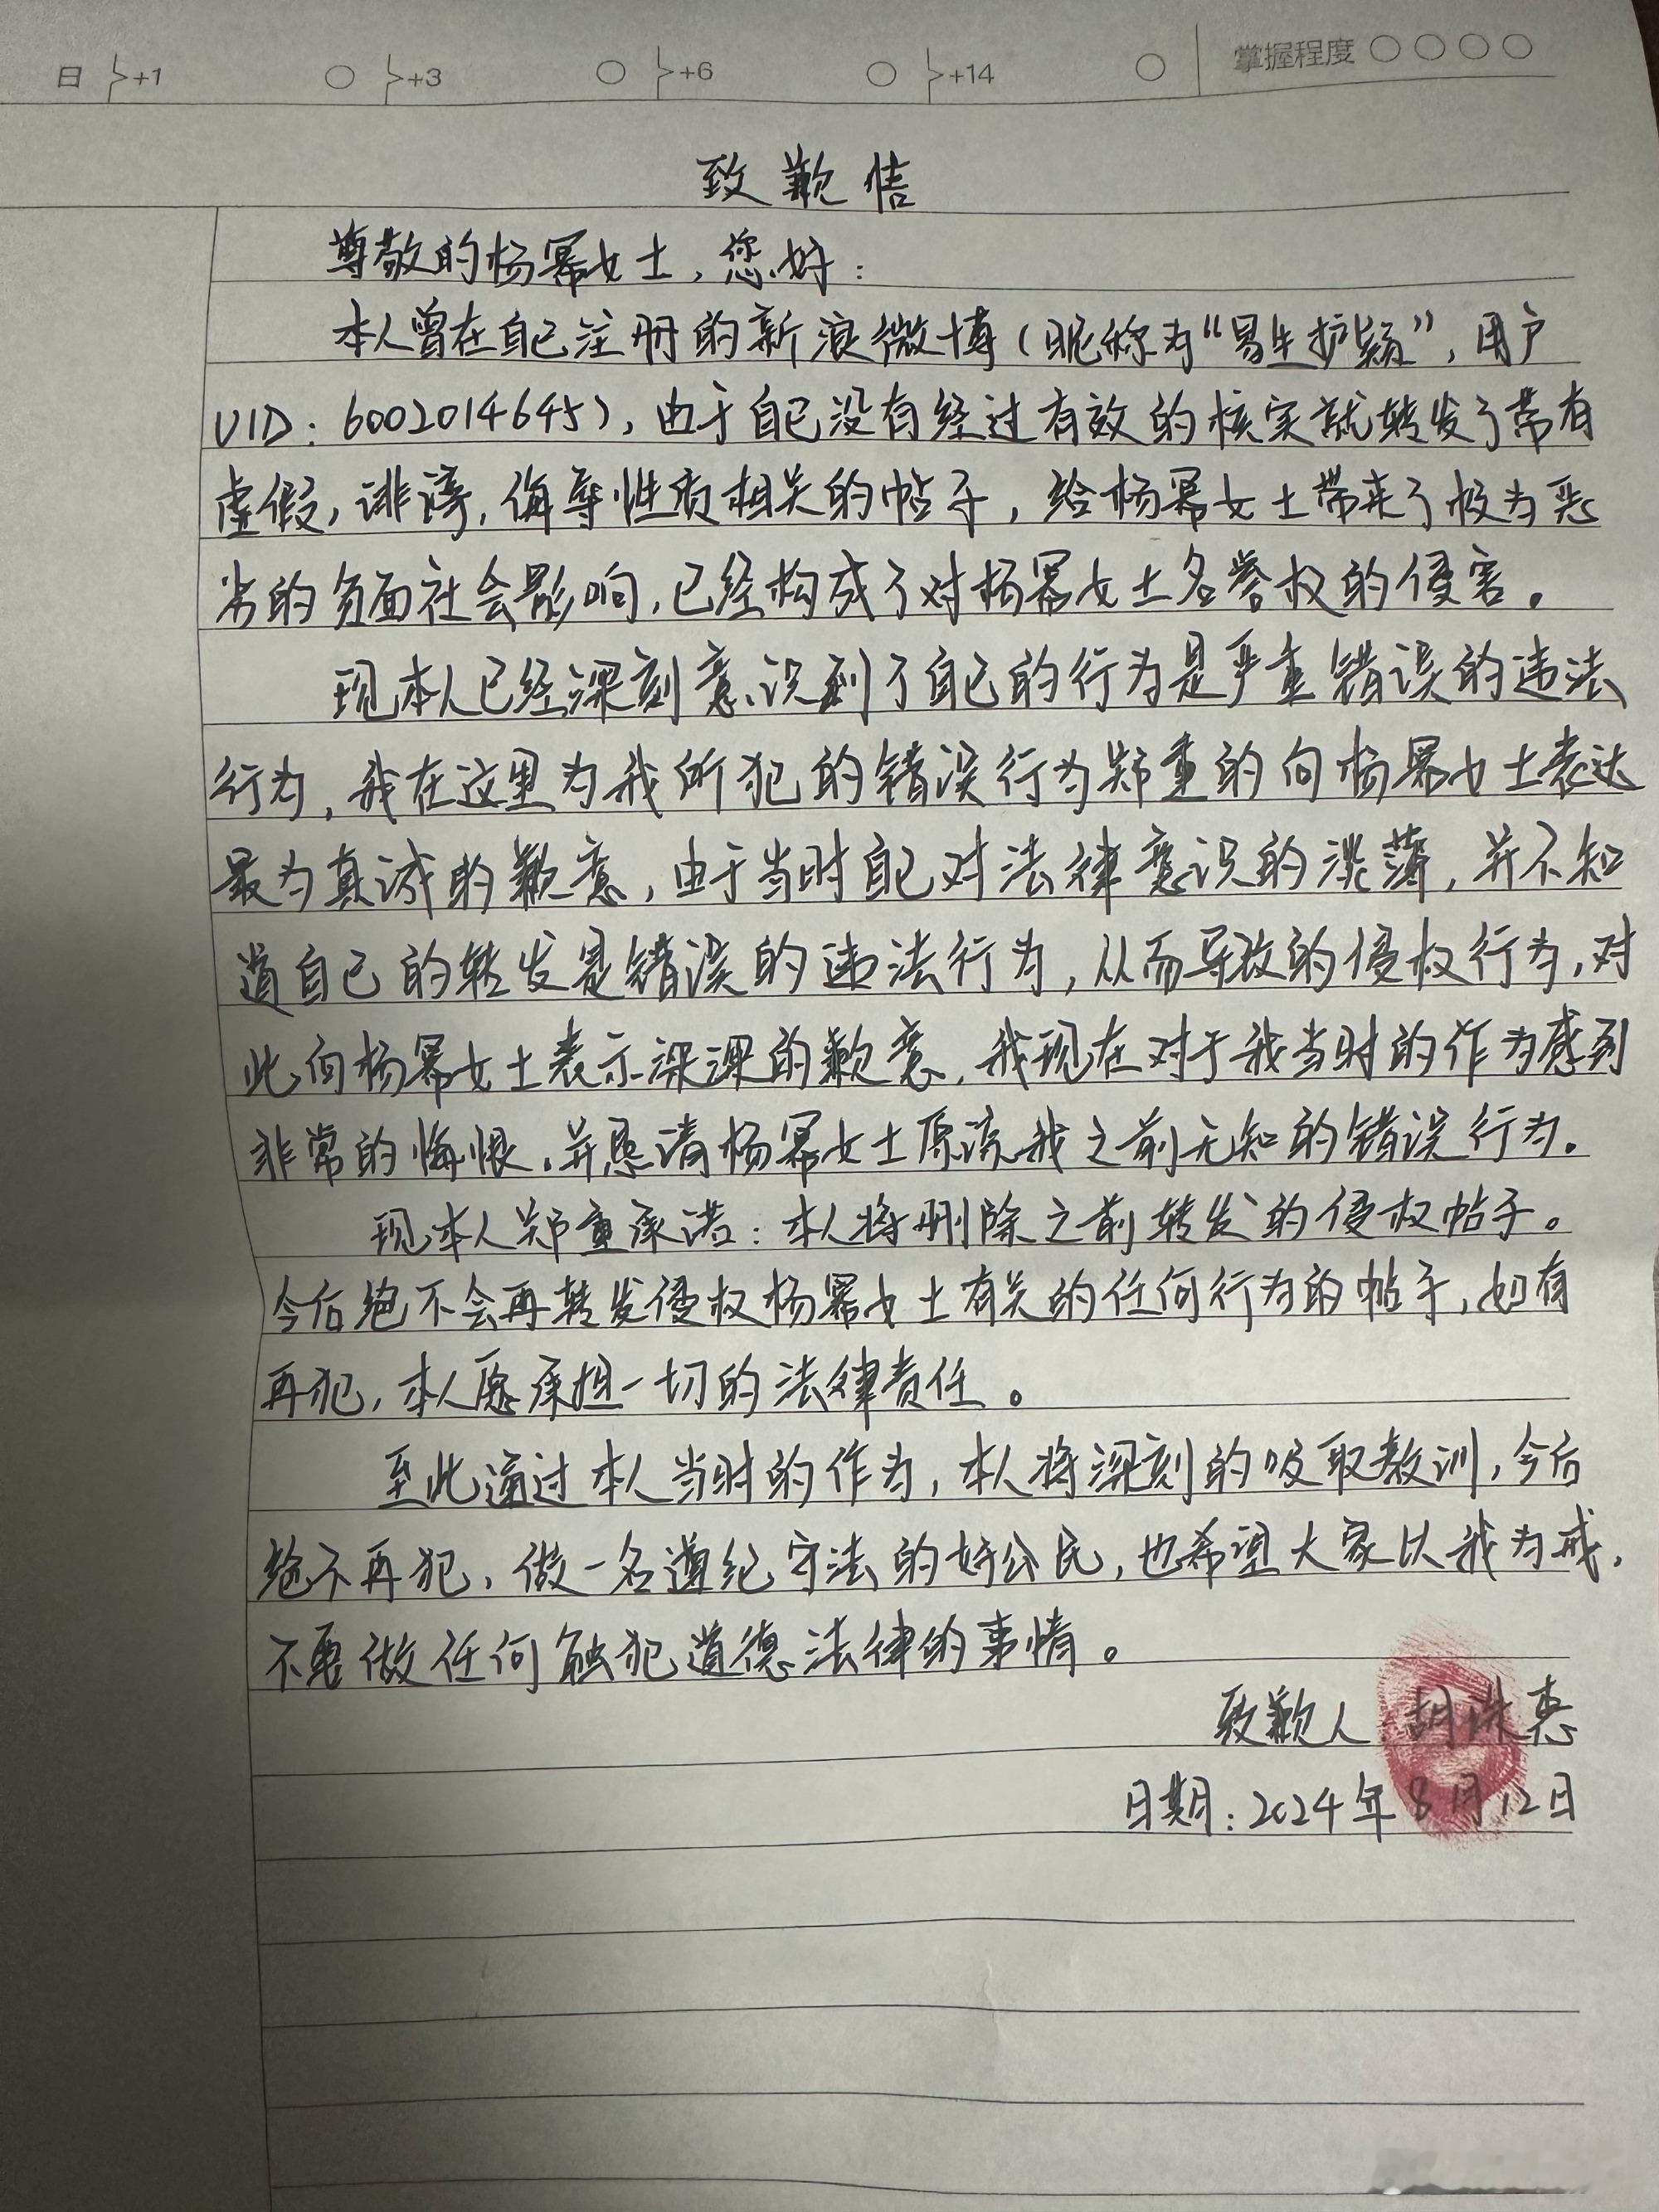 日 +1 +3 +6 +14 掌握程度
致歉信
尊敬的杨幂女士，您好：
本人曾在自己注册的新浪微博（昵称为“易生护颖”，用户
UID：6002014645），由于自己没有经过有效的核实就转发了带有
虚假，诽谤，侮辱性质相关的帖子，给杨幂女士带来了极为恶
劣的负面社会影响，已经构成了对杨幂女士名誉权的侵害。
现本人已经深刻意识到了自己的行为是严重错误的违法
行为，我在这里为我所犯的错误行为郑重的向杨幂女士表达
最为真诚的歉意，由于当时自己对法律意识的淡薄，并不知
道自己的转发是错误的违法行为，从而导致的侵权行为，对
此向杨幂女士表示深深的歉意，我现在对于我当时的作为感到
非常的悔恨，并恳请杨幂女士原谅我之前无知的错误行为。
现本人郑重承诺：本人将删除之前转发的侵权帖子。
今后绝不会再转发侵权杨幂女士有关的任何行为的帖子，如有
再犯，本人愿承担一切的法律责任。
至此通过本人当时的作为，本人将深刻的吸取教训，今后
绝不再犯，做一名遵纪守法的好公民，也希望大家以我为戒，
不要做任何触犯道德法律的事情。
致歉人 胡洙惠
日期：2024年8月12日